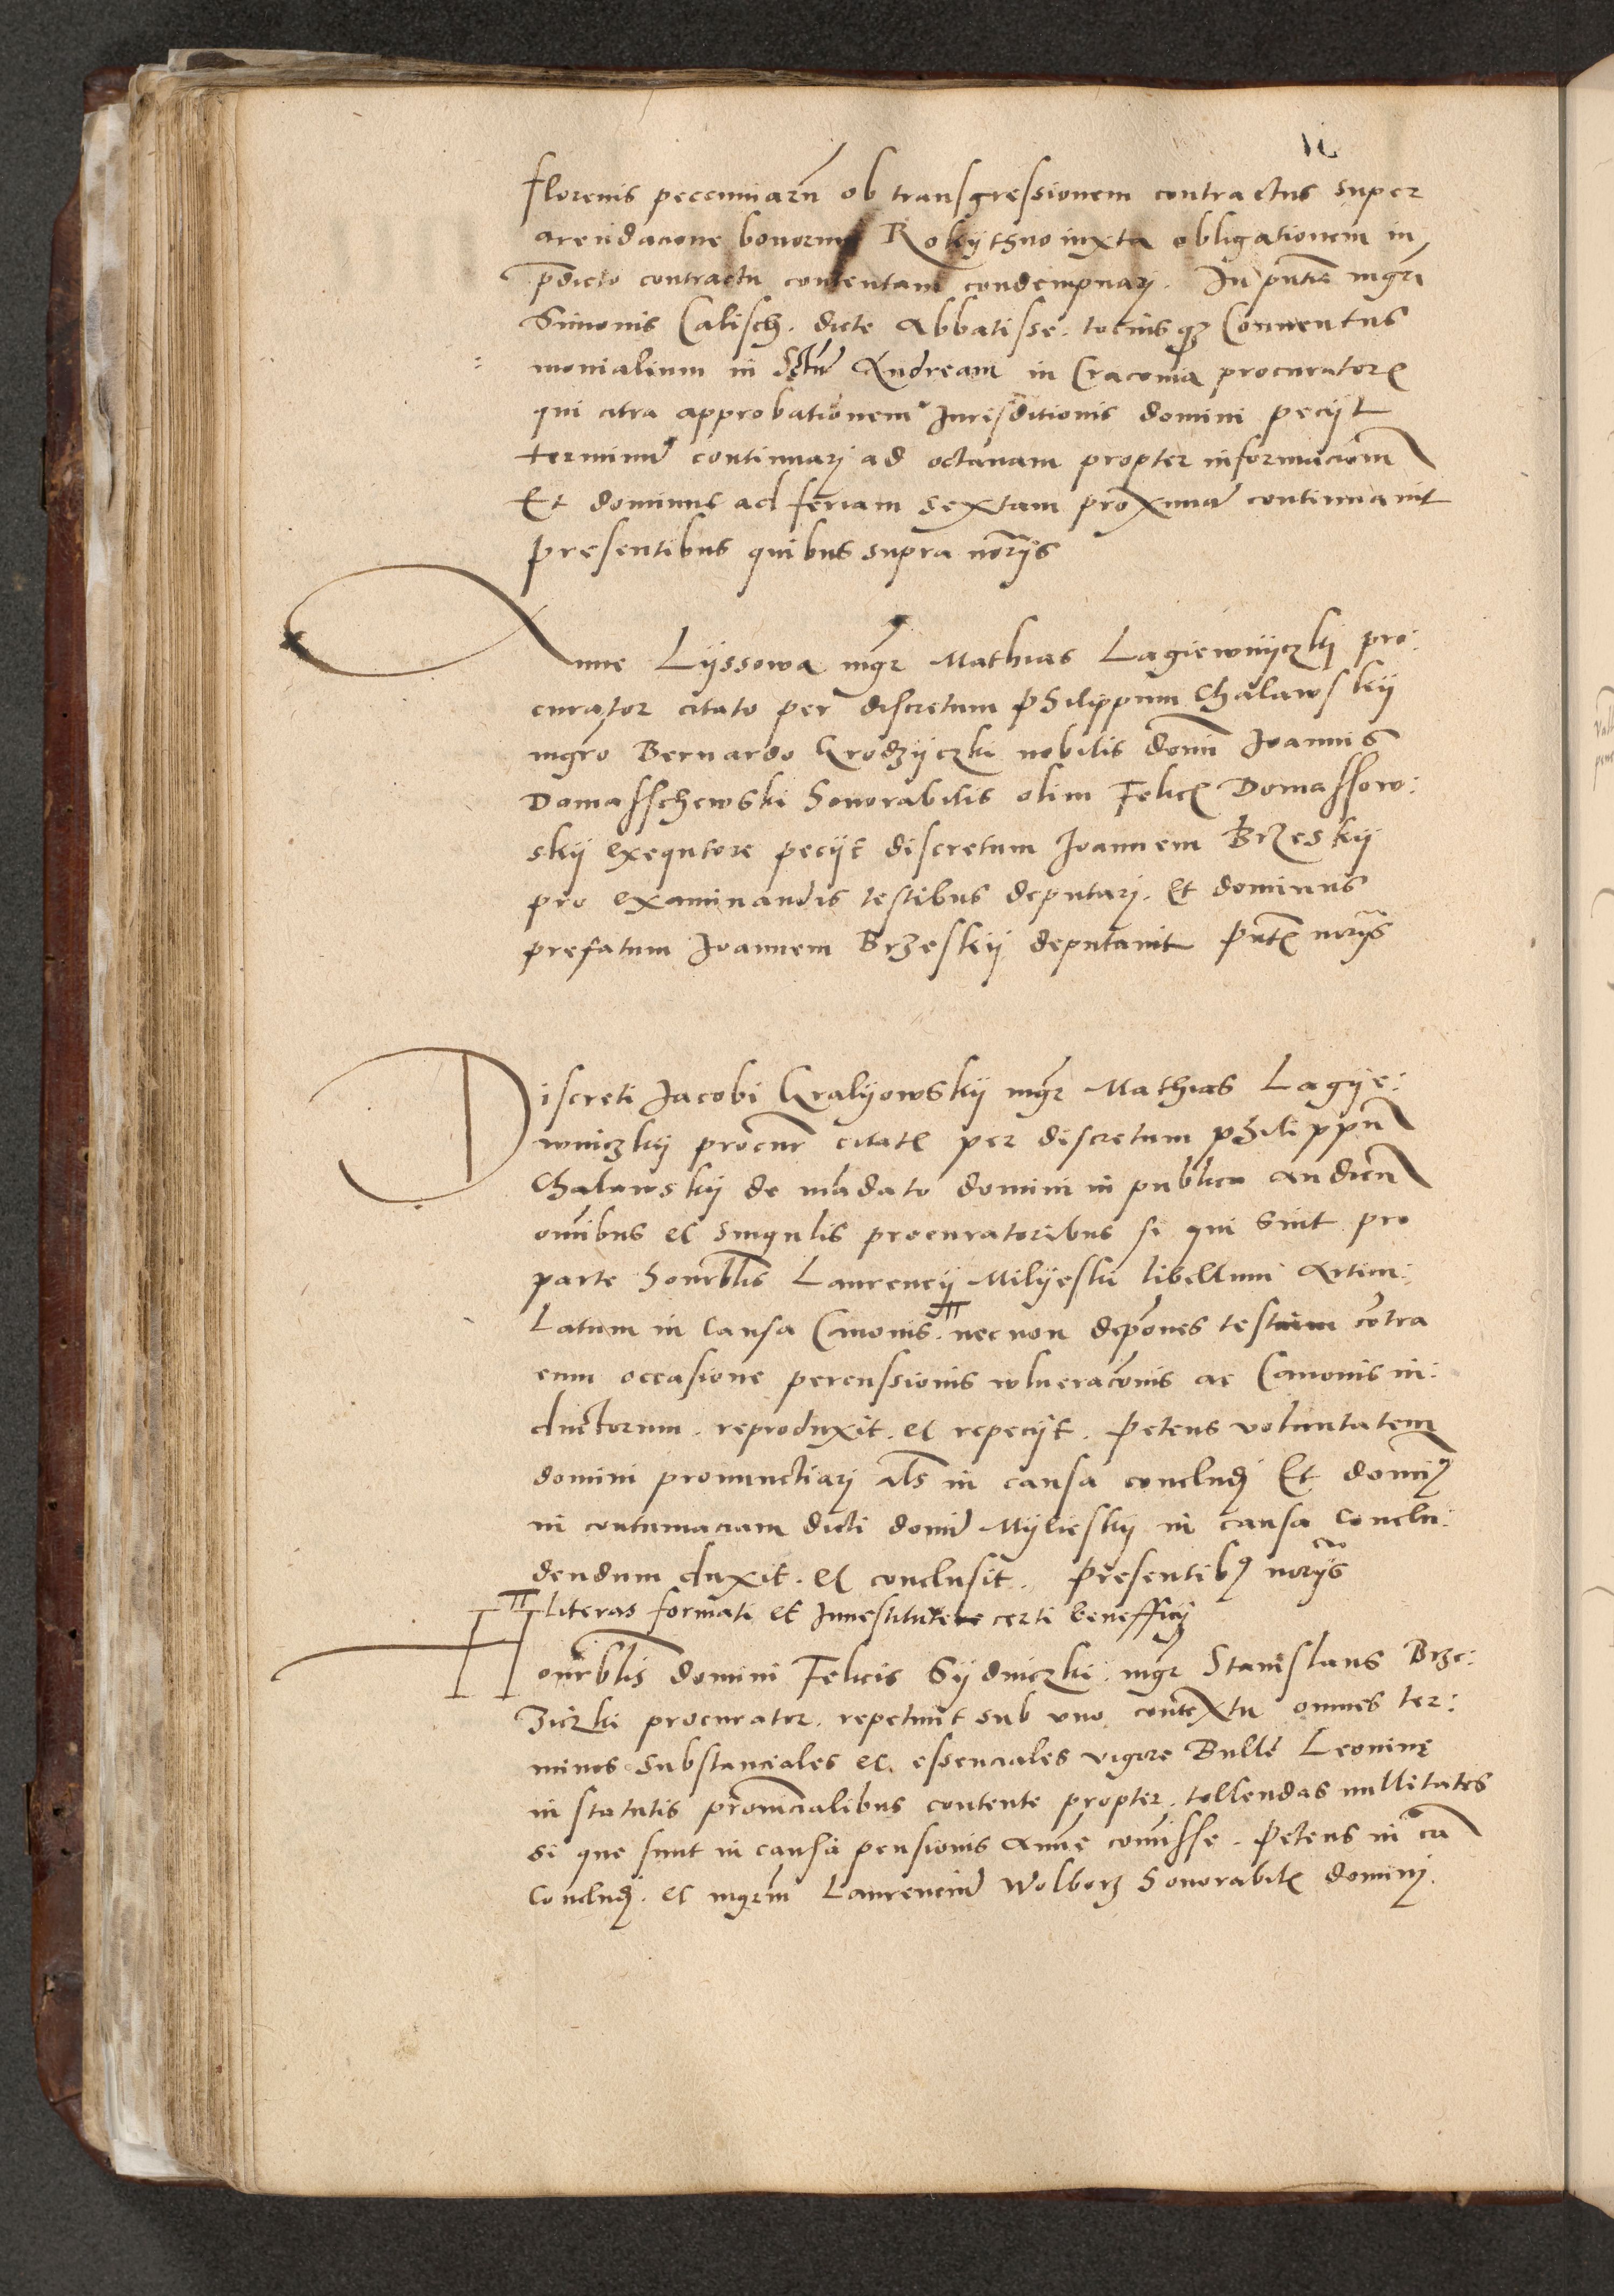 florenis peccuniarũ ob transgressionem contractus super
arendacione bonorum Rokythno iuxta obligationem in
p̃dicto contractu contentam condempnarj. In pñtia mgrĩ
Simonis Calisch. dicte Abbatisse. tociusqȝ Conuentus
monialium in Sctũ Andream in Cracouia procuratorꝭ
qui citra approbationem Jurisditionis domini peciit
terminũ continuarj ad octauam propter informaciom̃
Et dominus ad feriam sextam proximã continuauit
presentibus quibus supra nõrijs
Anne Lyssowa mgr̃ Mathias Lagiewnyczkj pro:
curator citato per discretum philippum Chalawskij
mgro Bernardo Grodzyczki nobilis domĩ Joannis
Domasschewski honorabilis olim Felicꝭ Domassow:
skij exequtore peciit discretum Joannem Brzeskij
pro examinandis testibus deputarj. Et dominus
prefatum Joannem Brzeskij deputauit pñtꝭ norijs
Discreti Jacobi Gralyowskij mgr̃ Mathias Lagye:
wniczkij procur̃ citatꝭ per discretum philippũ
Chalawskij de mãdato domini in publica audieñ
om̃ibus et singulis procuratoribus si qui sint pro
parte honr̃blis Laurencij Milyeski libellum Articu:
latum in causa Canonis. necnon depõnes testium cõtra
eum occasione percussionis wlneracõnis ac Canonis in:
ductorum. reproduxit. et repeciit. Petens voluntatem
domini pronunctiarj al̃s in causa concludj Et domiñ9
in contumaciam dicti domĩ Mylieskij in causa conclu:
dendum duxit. et conclusit. presentibȝ norijs
literas formati et Inuestiture certi benefficij
Honr̃blis domini Felicis Sydniczki. mgr̃ Stanislaus Brze:
ziczki procurator. repetiuit sub vno contextu omnes ter:
minos substanciales et. essenciales vigore Bulle Leoninę
in statutis prouĩcialibus contente propter. tollendas nullitates
si que sunt in causa pensionis Annue comisse. Petens in cã
concludj. et mgrm̃ Laurenciũ Wolborz honorabilꝭ dominj.